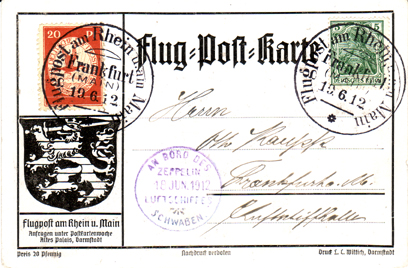 Flug-Post-Karte
20 Pf
Flugpost am Rhein u. Main
Frankfurt
(MAIN)
19.6.12
Flugpost am Rhein u. Main
(MAIN)
19.6.12
Herrn
Otto
AN BORD DES
ZEPPELIN
18 JUN. 1912
LUFTSCHIFFES
SCHWABEN
Frankfurt a. M.
Luftschiffhalle
Flugpost am Rhein u. Main
Anfragen unter Postkartenwoche
Altes Palais, Darmstadt
Preis 20 Pfennig
Nachdruck verboten
Druck L. C. Wittich, Darmstadt